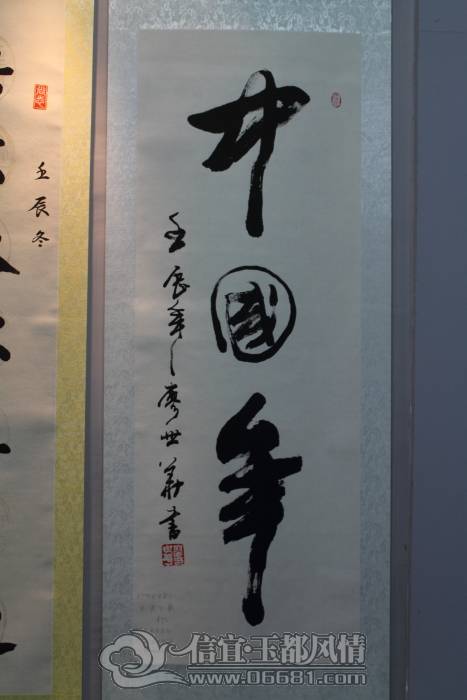 中國年
壬辰年廖世華書
壬辰冬
信宜·玉都风情
www.06681.com